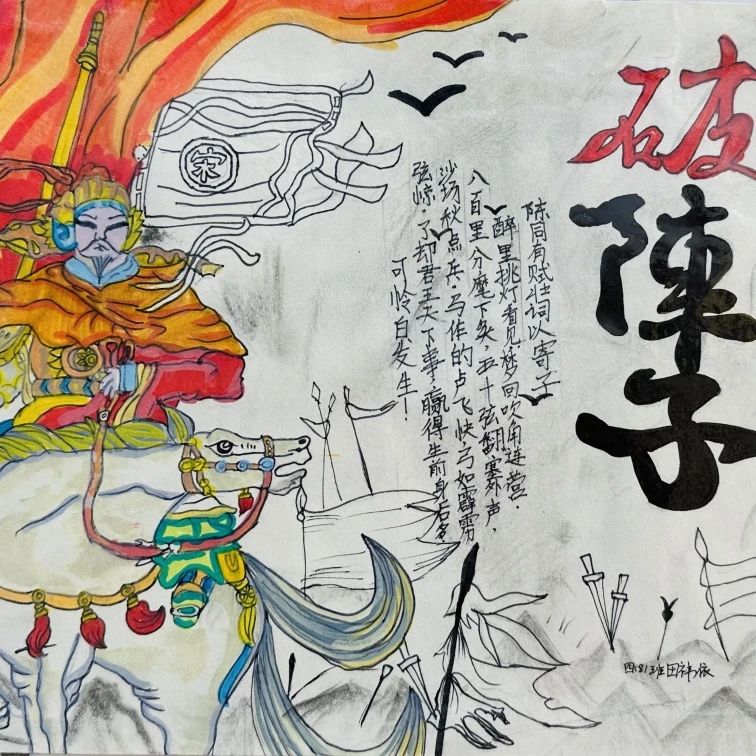 破
陳子
宋
陈同有赋壮词以寄子
醉里挑灯看见,梦回吹角连营.
八百里分麾下炙,五十弦翻塞外声,
沙场秋点兵.马作的卢飞快,弓如霹雳
弦惊.了却君王天下事,赢得生前身后名
可怜白发生!
四(8)班田祎依